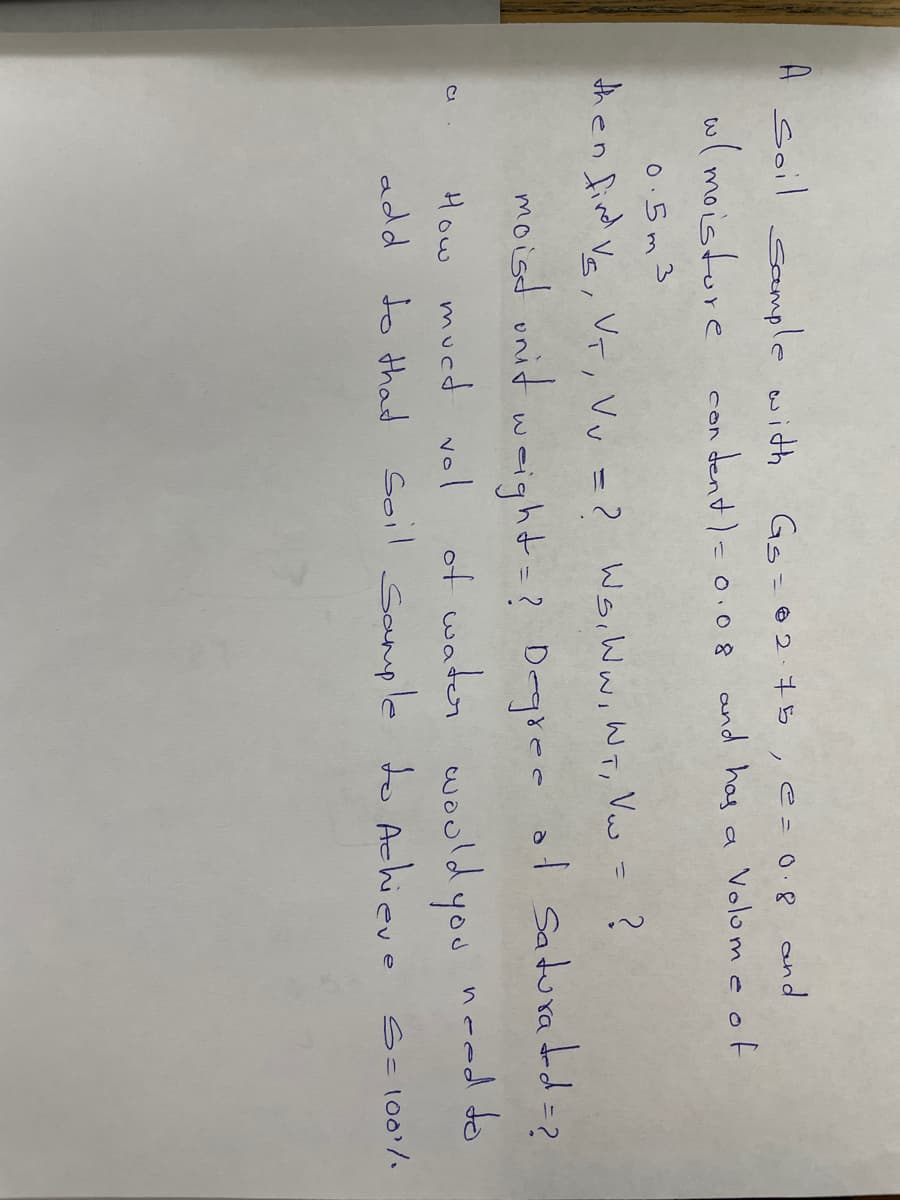 A Soil Sample with Gs = 2.75, e = 0.8 and
w(moisture content) = 0.08 and has a Volume of
0.5 m³
then find Vs, VT, Vv = ? Ws, Ww, WT, Vw = ?
moist unit weight = ? Degree of Saturated = ?
a. How much vol of water would you need to
add to that Soil Sample to Achieve S = 100%